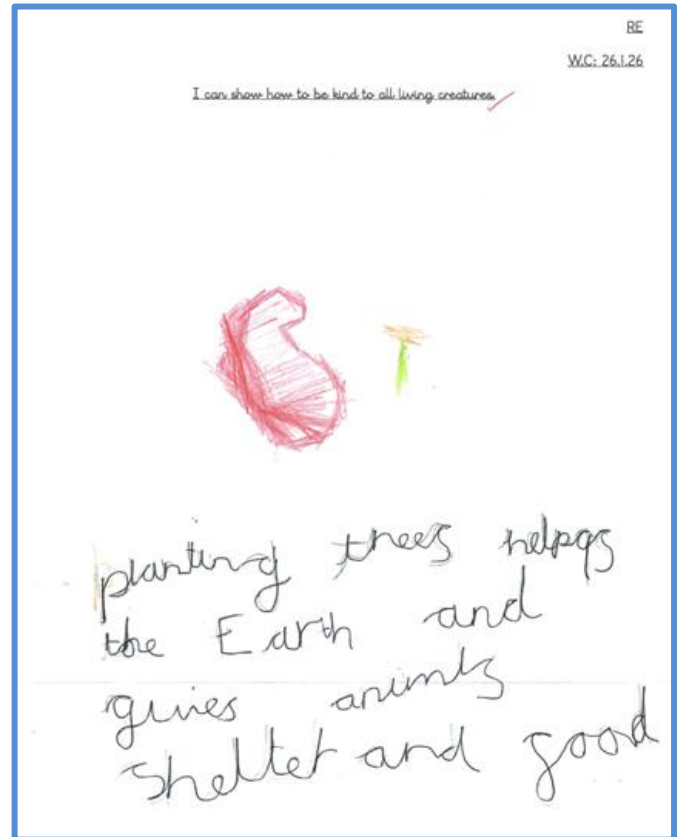 RE
W.C: 26.1.26
I can show how to be kind to all living creatures.
planting trees helpgs
the Earth and
gives animls
Shelter and good